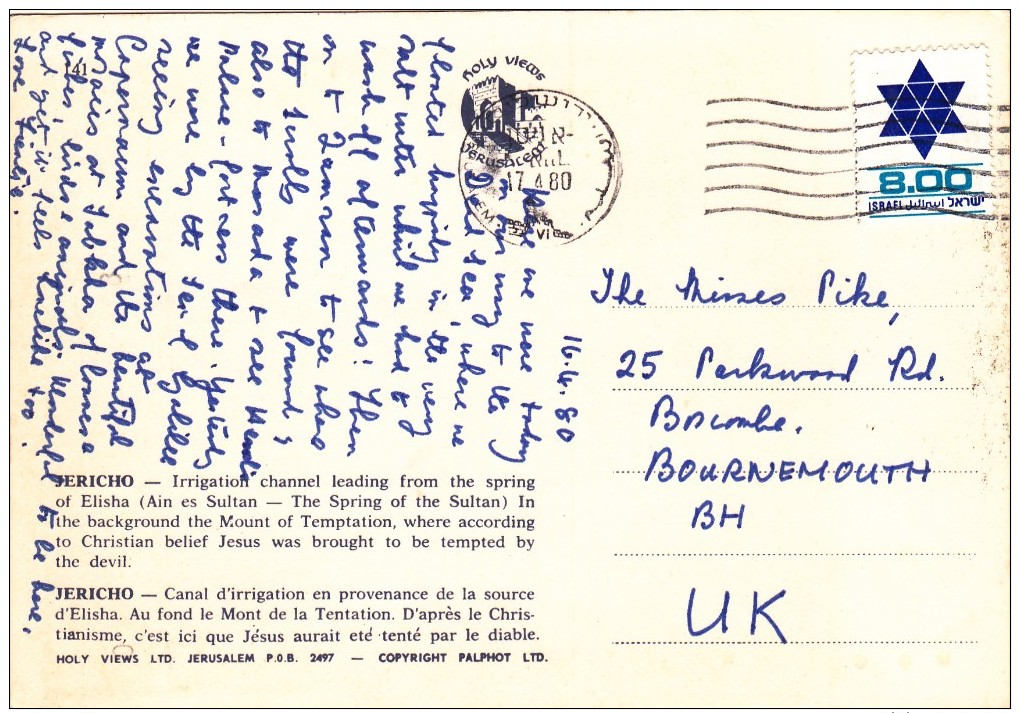 41
HOLY VIEWS
JERUSALEM
17.4.80
8.00
ISRAEL اسرائيل ישראל
16.4.80
Here we were today
on our way to the
Dead Sea, where we
floated happily in the very
salt water while we had to
wash off afterwards! Then
on to Qumran to see where
the scrolls were found &
also to Masada to see Herod's
Palace-fortress there. Yesterday
we were by the Sea of Galilee
seeing excavations at
Capernaum and the beautiful
mosaics at Tabgha of loaves &
fishes, birds & animals. Wonderful to be here,
and yet it feels
Love
The Misses Pike,
25 Parkwood Rd.
Boscombe.
BOURNEMOUTH
BH
UK
JERICHO — Irrigation channel leading from the spring
of Elisha (Ain es Sultan — The Spring of the Sultan) In
the background the Mount of Temptation, where according
to Christian belief Jesus was brought to be tempted by
the devil.
JERICHO — Canal d'irrigation en provenance de la source
d'Elisha. Au fond le Mont de la Tentation. D'après le Chris-
tianisme, c'est ici que Jésus aurait eté tenté par le diable.
HOLY VIEWS LTD. JERUSALEM P.O.B. 2497 — COPYRIGHT PALPHOT LTD.